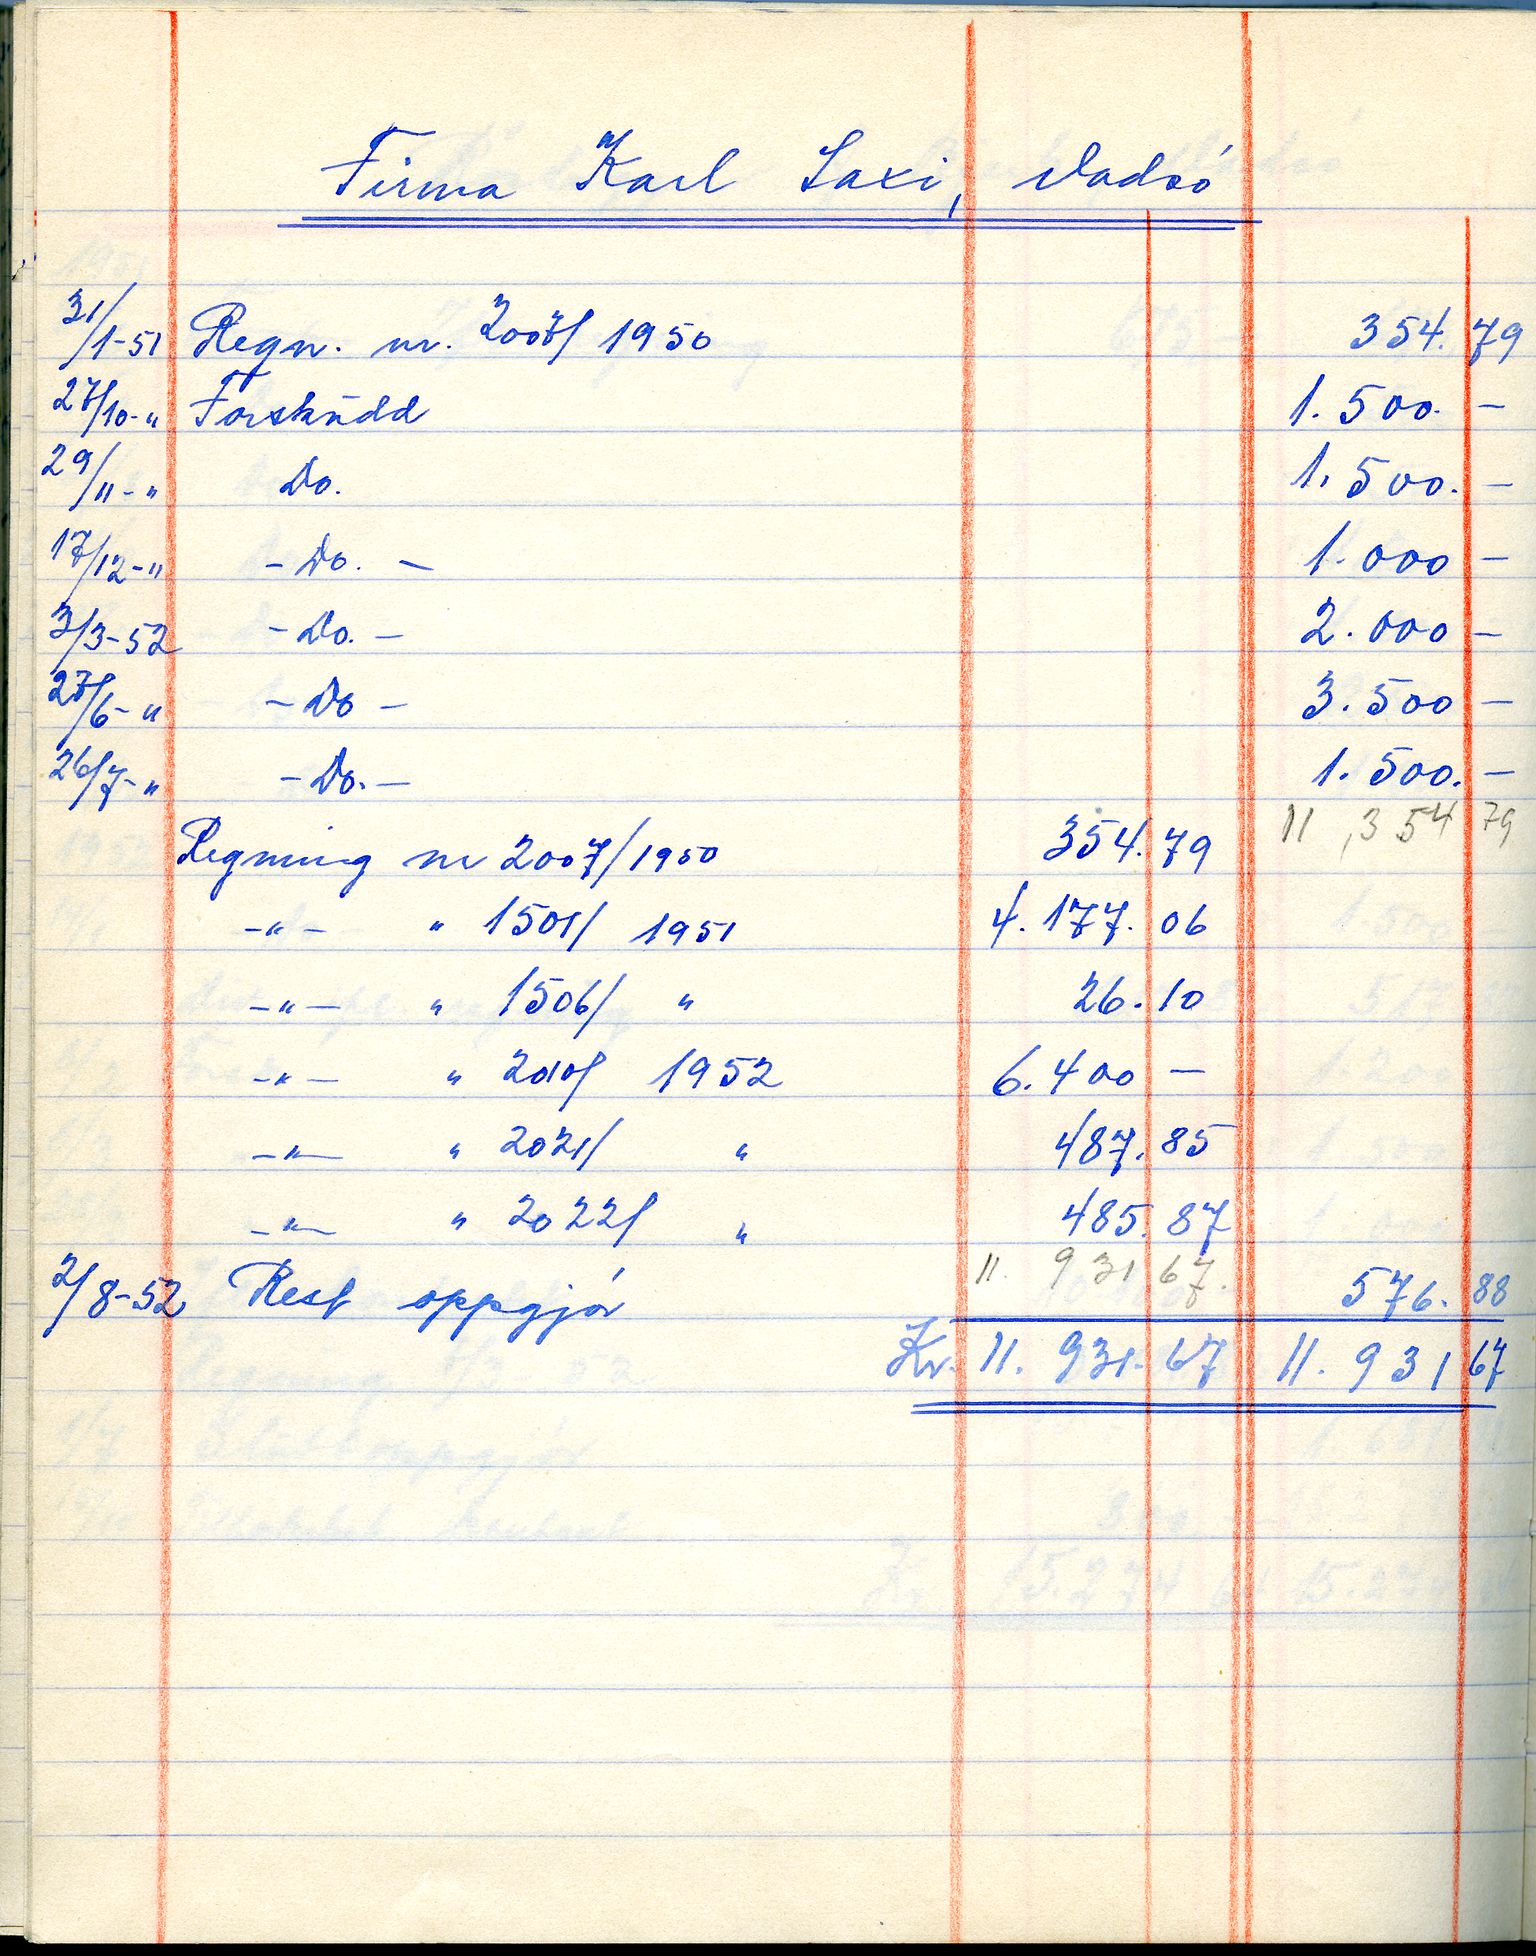 Firma Karl Saxi, Vadsó
31/1-51 Regn. nr. 2007/ 1950 354.79
27/10-" Forskudd 1.500.-
29/11-" Do. 1.500.-
17/12-" -Do.- 1.000-
3/3-52 -Do.- 2.000-
27/6-" -Do- 3.500-
26/7-" -Do.- 1.500.-
11,354 79
Regning nr 2007/1950 354.79
-"- " 1501/ 1951 4.177.06
-"- " 1506/ " 26.10
-"- " 2010/ 1952 6.400-
-"- " 2021/ " 487.85
-"- " 2022/ " 485.87
11. 931 67.
2/8-52 Rest oppgjór 576.88
Kr. 11.931.67 11.931 67